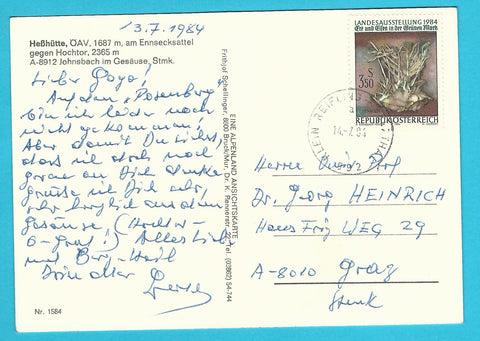 13.7.1984
Heßhütte, ÖAV, 1687 m, am Ennsecksattel
gegen Hochtor, 2365 m
A-8912 Johnsbach im Gesäuse, Stmk.
Lieber Gogo!
Auf den "Rosenberg"
bin ich leider noch
nicht gekommen!
Aber damit Du siehst,
dass ich doch noch
gerne an Dich denke
grüße ich Dich
sehr herzlich aus dem
Gesäuse, (Hochtor-
Ö-Grat!) Alles Liebe
und Berg-Heil
Dein alter
Nr. 1584
EINE ALPENLAND ANSICHTSKARTE
Frithjof Schellinger, 8600 Bruck/Mur, Dr. K. Rennerstr. Tel. (03862) 54-744
LANDESAUSSTELLUNG 1984
Erz und Eisen in der Grünen Mark
S
3.50
REPUBLIK ÖSTERREICH
KLEIN REIFLING
14.-7.84
Herrn
Dr. Georg HEINRICH
WEG 29
A-8010 Graz
Stmk